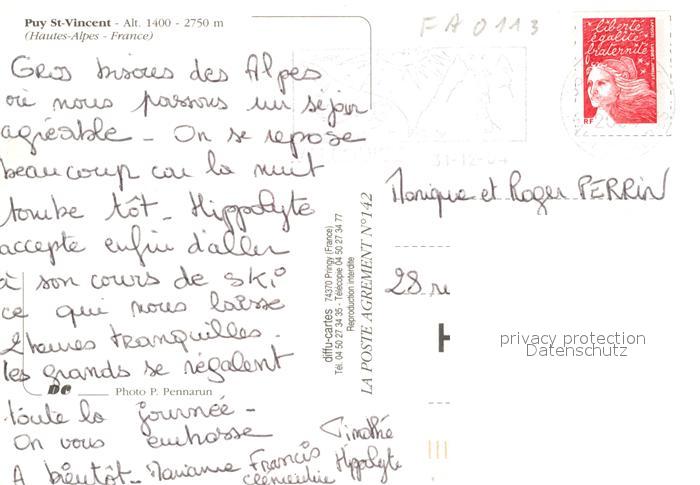 Puy St-Vincent - Alt. 1400 - 2750 m
(Hautes-Alpes - France)
Gros bisous des Alpes
où nous passons un séjour
agréable - On se repose
beaucoup car la nuit
tombe tôt - Hippolyte
accepte enfin d'aller
à son cours de ski
ce qui nous laisse
2 heures tranquilles.
les grands se régalent
Photo P. Pennarun
toute la journée -
On vous embrasse
A bientôt - Marianne Francis Timothé
Clémentine Hippolyte
diffu-cartes 74370 Pringy (France)
Tél. 04 50 27 34 35 - Télécopie 04 50 27 34 77
Reproduction interdite
LA POSTE AGREMENT N° 142
FA0113
liberté
égalité
fraternité
RF
31-12-04
Monique et Roger PERRIN
28 ru
privacy protection
Datenschutz